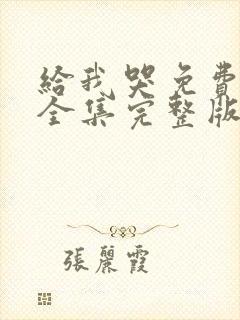 給我哭免費
全集完整版
張麗霞